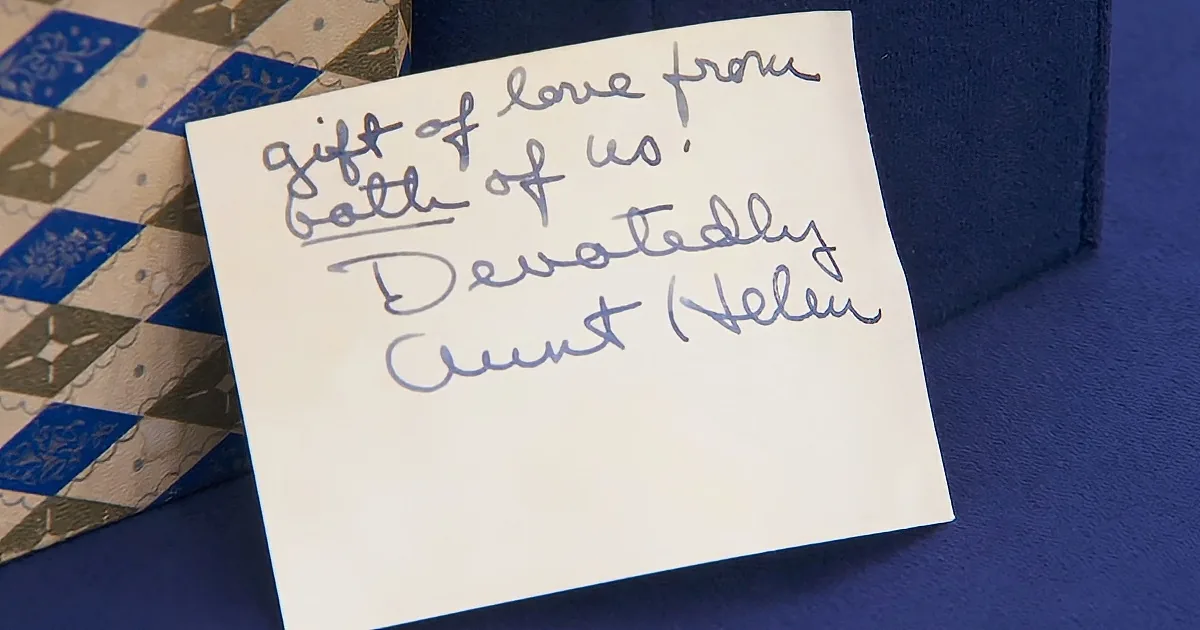 gift of love from
both of us!
Devotedly
Aunt Helen